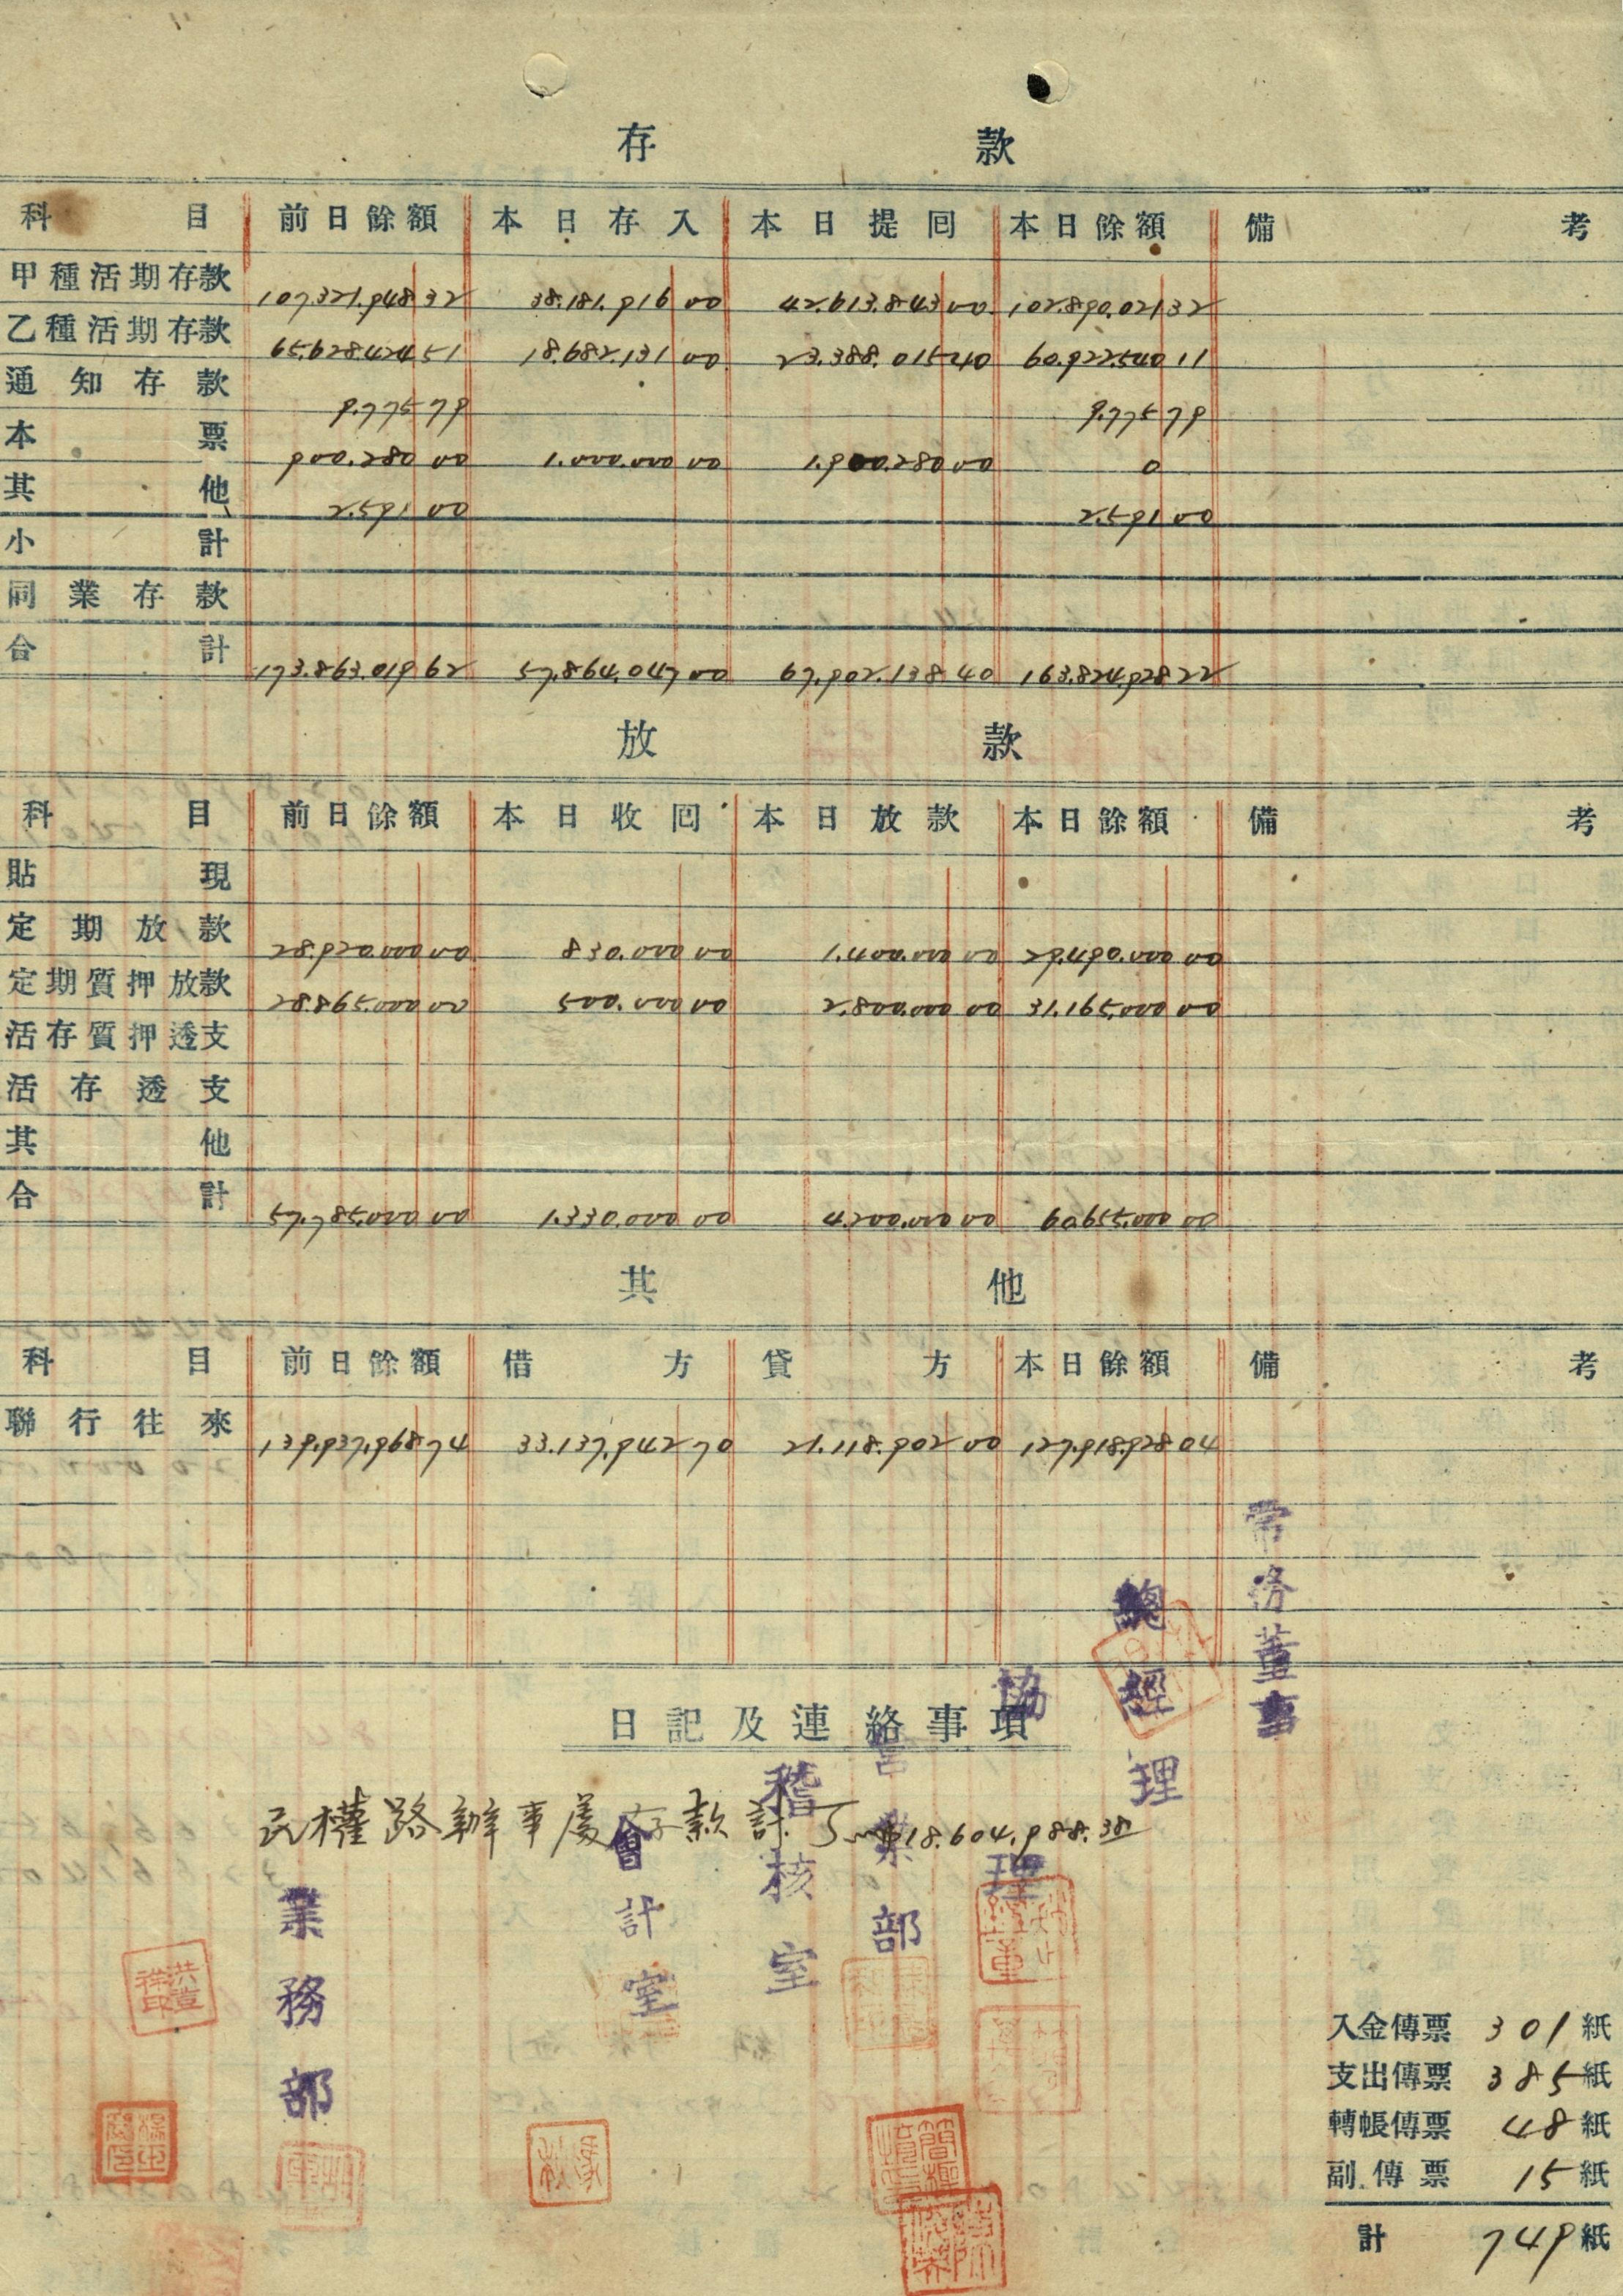 存 款
科目 前日餘額 本日存入 本日提囘 本日餘額 備考
甲種活期存款 107.321.948 32 38.181.916 00 42.613.843 00 102.890.021 32
乙種活期存款 65.628.424 51 18.682.131 00 23.388.015 40 60.922.540 11
通知存款 9.775 79 9.775 79
本票 900.280 00 1.000.000 00 1.900.280 00 0
其他 2.591 00 2.591 00
小計
同業存款
合計 173.863.019 62 57.864.047 00 67.902.138 40 163.824.928 22
放 款
科目 前日餘額 本日收囘 本日放款 本日餘額 備考
貼現
定期放款 28.920.000 00 830.000 00 1.400.000 00 29.490.000 00
定期質押放款 28.865.000 00 500.000 00 2.800.000 00 31.165.000 00
活存質押透支
活存透支
其他
合計 57.785.000 00 1.330.000 00 4.200.000 00 60.655.000 00
其 他
科目 前日餘額 借方 貸方 本日餘額 備考
聯行往來 139.937.968 74 33.137.942 70 21.118.902 00 127.918.928 04
日記及連絡事項
民權路辦事處存款計 $18.604.988.38
常務董事
總經理
協理
營業部
稽核室
會計室
業務部
入金傳票 301 紙
支出傳票 385 紙
轉帳傳票 48 紙
副傳票 15 紙
計 749 紙